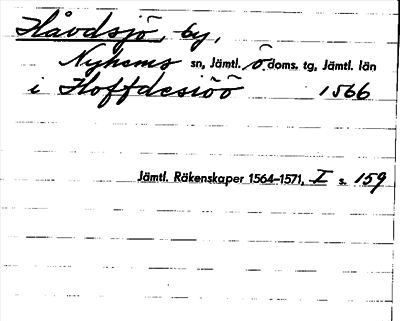 Håvdsjö, by,
Nyhems sn, Jämtl. ö. doms. tg, Jämtl. län
i Hoffdesiöö 1566
Jämtl. Räkenskaper 1564–1571, I s. 159